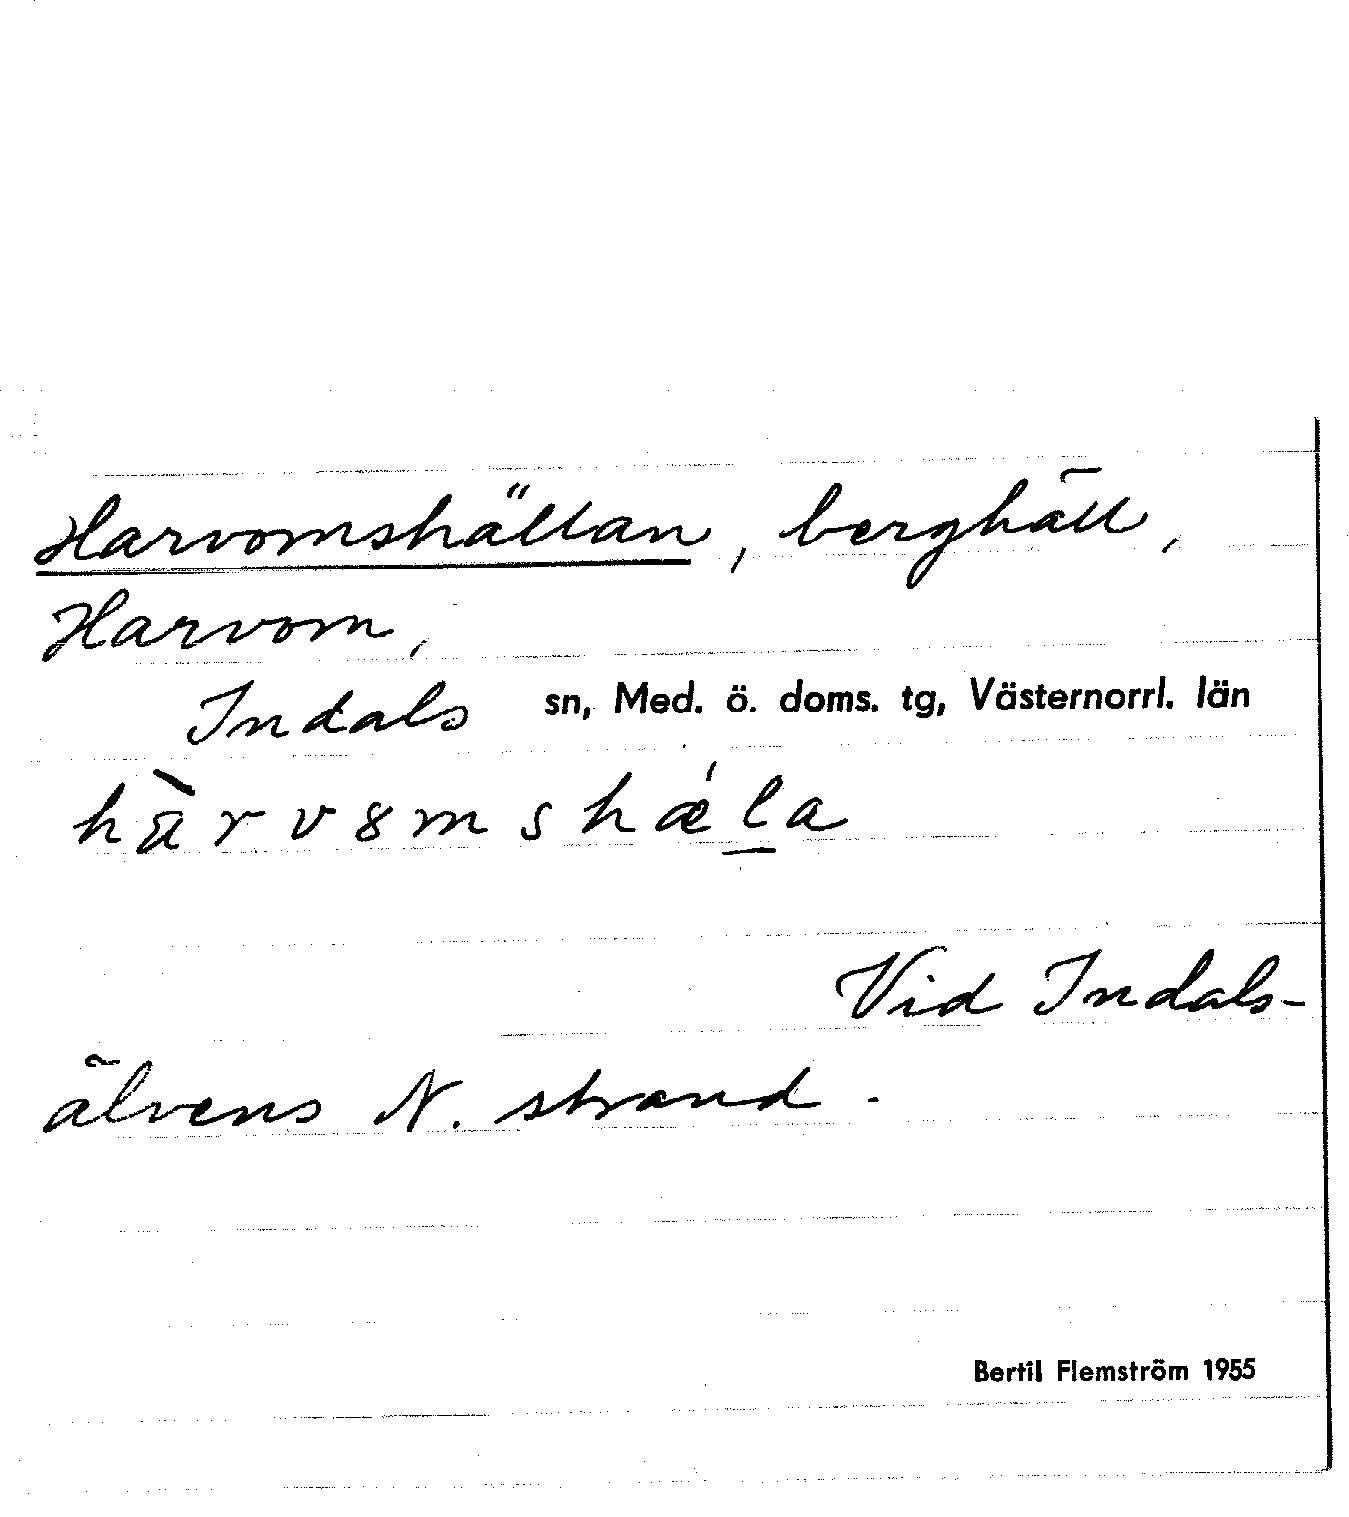 Harvomshällan, berghäll,
Harvom,
Indals sn, Med. ö. doms. tg, Västernorrl. län
hàrvȣmshǽla
Vid Indals-
älvens N. strand.
Bertil Flemström 1955